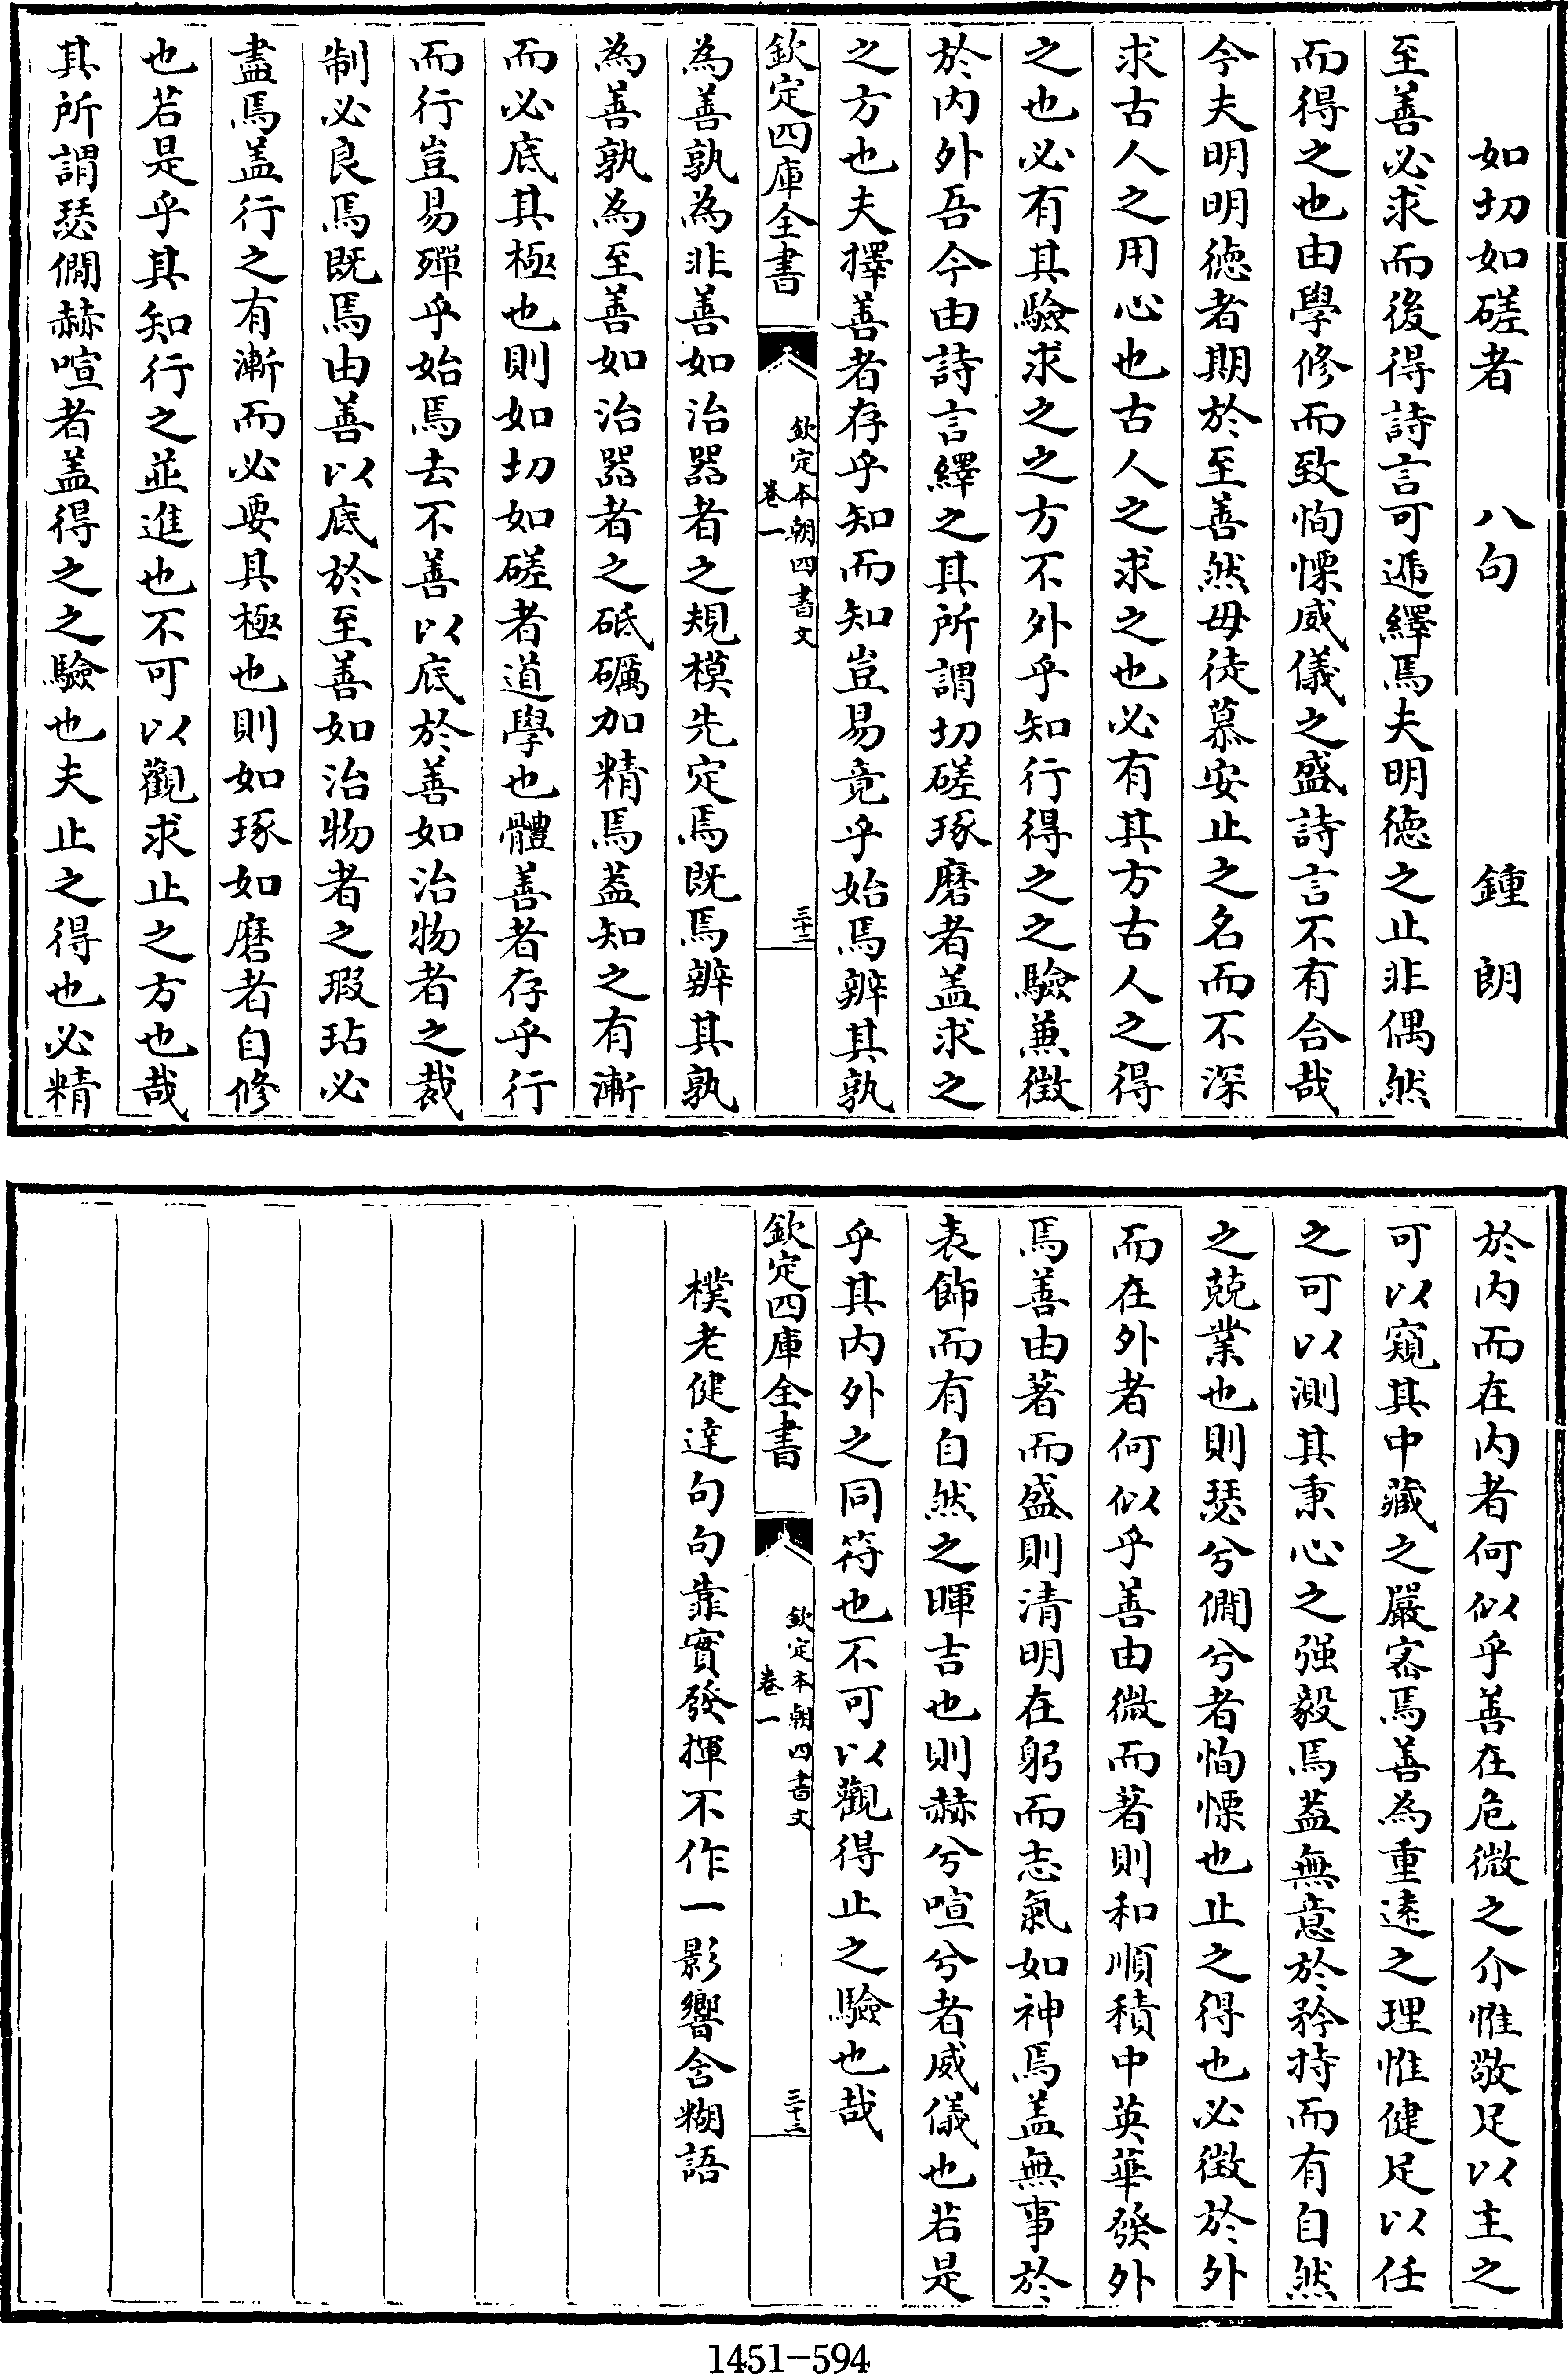 如切如磋者　八句　鍾朗
至善必求而後得詩言可遞繹焉夫明德之止非偶然
而得之也由學修而致恂慄威儀之盛詩言不有合哉
今夫明明德者期於至善然毋徒慕安止之名而不深
求古人之用心也古人之求之也必有其方古人之得
之也必有其驗求之之方不外乎知行得之之驗兼徴
於内外吾今由詩言繹之其所謂切磋琢磨者盖求之
之方也夫擇善者存乎知而知豈易竟乎始焉辨其孰
欽定四庫全書
欽定本朝四書文
卷一
三十二
為善孰為非善如治器者之規模先定焉既焉辨其孰
為善孰為至善如治器者之砥礪加精焉葢知之有漸
而必底其極也則如切如磋者道學也體善者存乎行
而行豈易殫乎始焉去不善以底於善如治物者之裁
制必良焉既焉由善以底於至善如治物者之瑕玷必
盡焉盖行之有漸而必要其極也則如琢如磨者自修
也若是乎其知行之並進也不可以觀求止之方也哉
其所謂瑟僩赫喧者盖得之之驗也夫止之得也必精
於内而在内者何似乎善在危微之介惟敬足以主之
可以窺其中藏之嚴宻焉善為重逺之理惟健足以任
之可以測其秉心之强毅焉葢無意於矜持而有自然
之兢業也則瑟兮僩兮者恂慄也止之得也必徴於外
而在外者何似乎善由微而著則和順積中英華發外
焉善由著而盛則清明在躬而志氣如神焉盖無事於
表飾而有自然之暉吉也則赫兮喧兮者威儀也若是
乎其内外之同符也不可以觀得止之驗也哉
欽定四庫全書
欽定本朝四書文
卷一
三十二
樸老健達句句靠實發揮不作一影響含糊語
1451-594